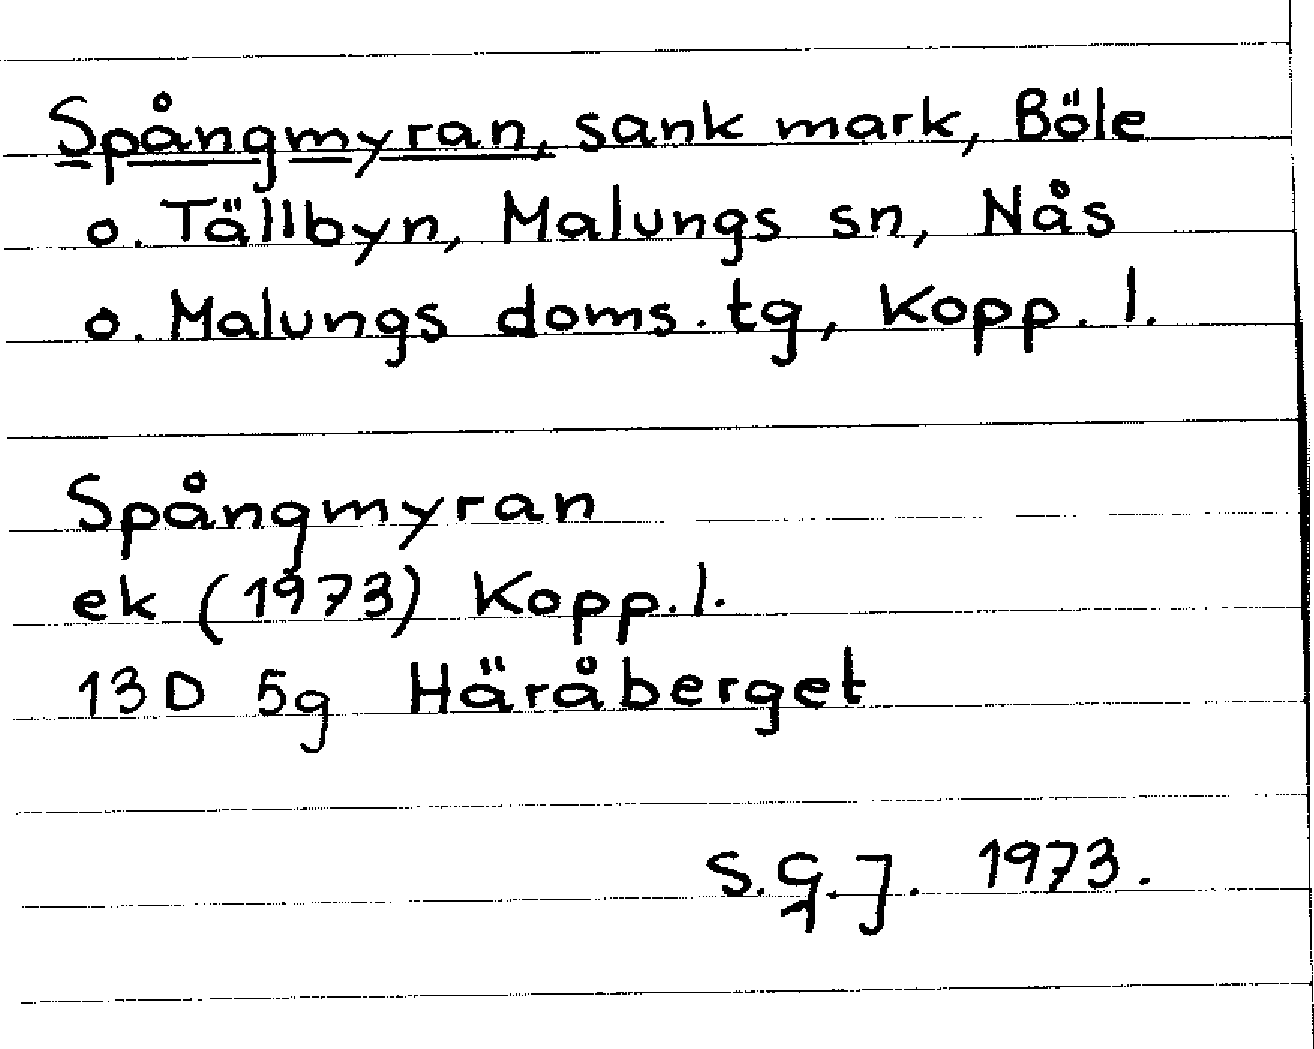 Spångmyran, sank mark, Böle
o. Tällbyn, Malungs sn, Nås
o. Malungs doms. tg, Kopp. l.
Spångmyran
ek (1973) Kopp. l.
13D 5g Häråberget
S.G.J. 1973.